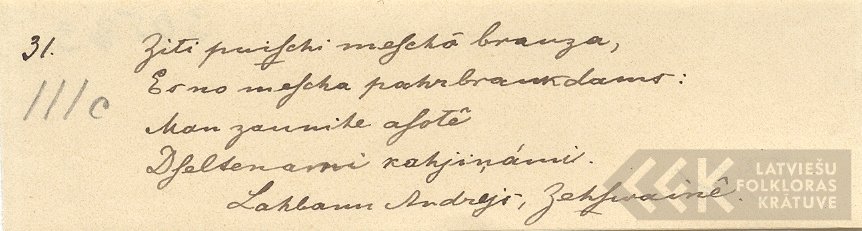 31.
Ziti puischi meschâ brauza,
Es no mescha pahrbraukdams:
Man zaunite asotê
Dseltenami kahjiņâmi.
Lahbann Andrejs, Zehswainê.
///c
LATVIEŠU
FOLKLORAS
KRĀTUVE